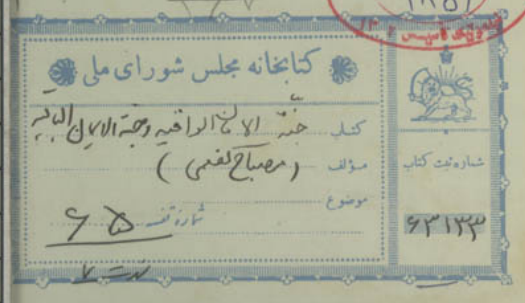 ۱۳۰۲
کتابخانه مجلس شورای ملی
کتاب جنّة الامان الواقیه وجنة الایمان الباقیه
مؤلف (مصباح کفعمی)
موضوع
شماره ثبت کتاب
۶۳۱۳۳
۶۵